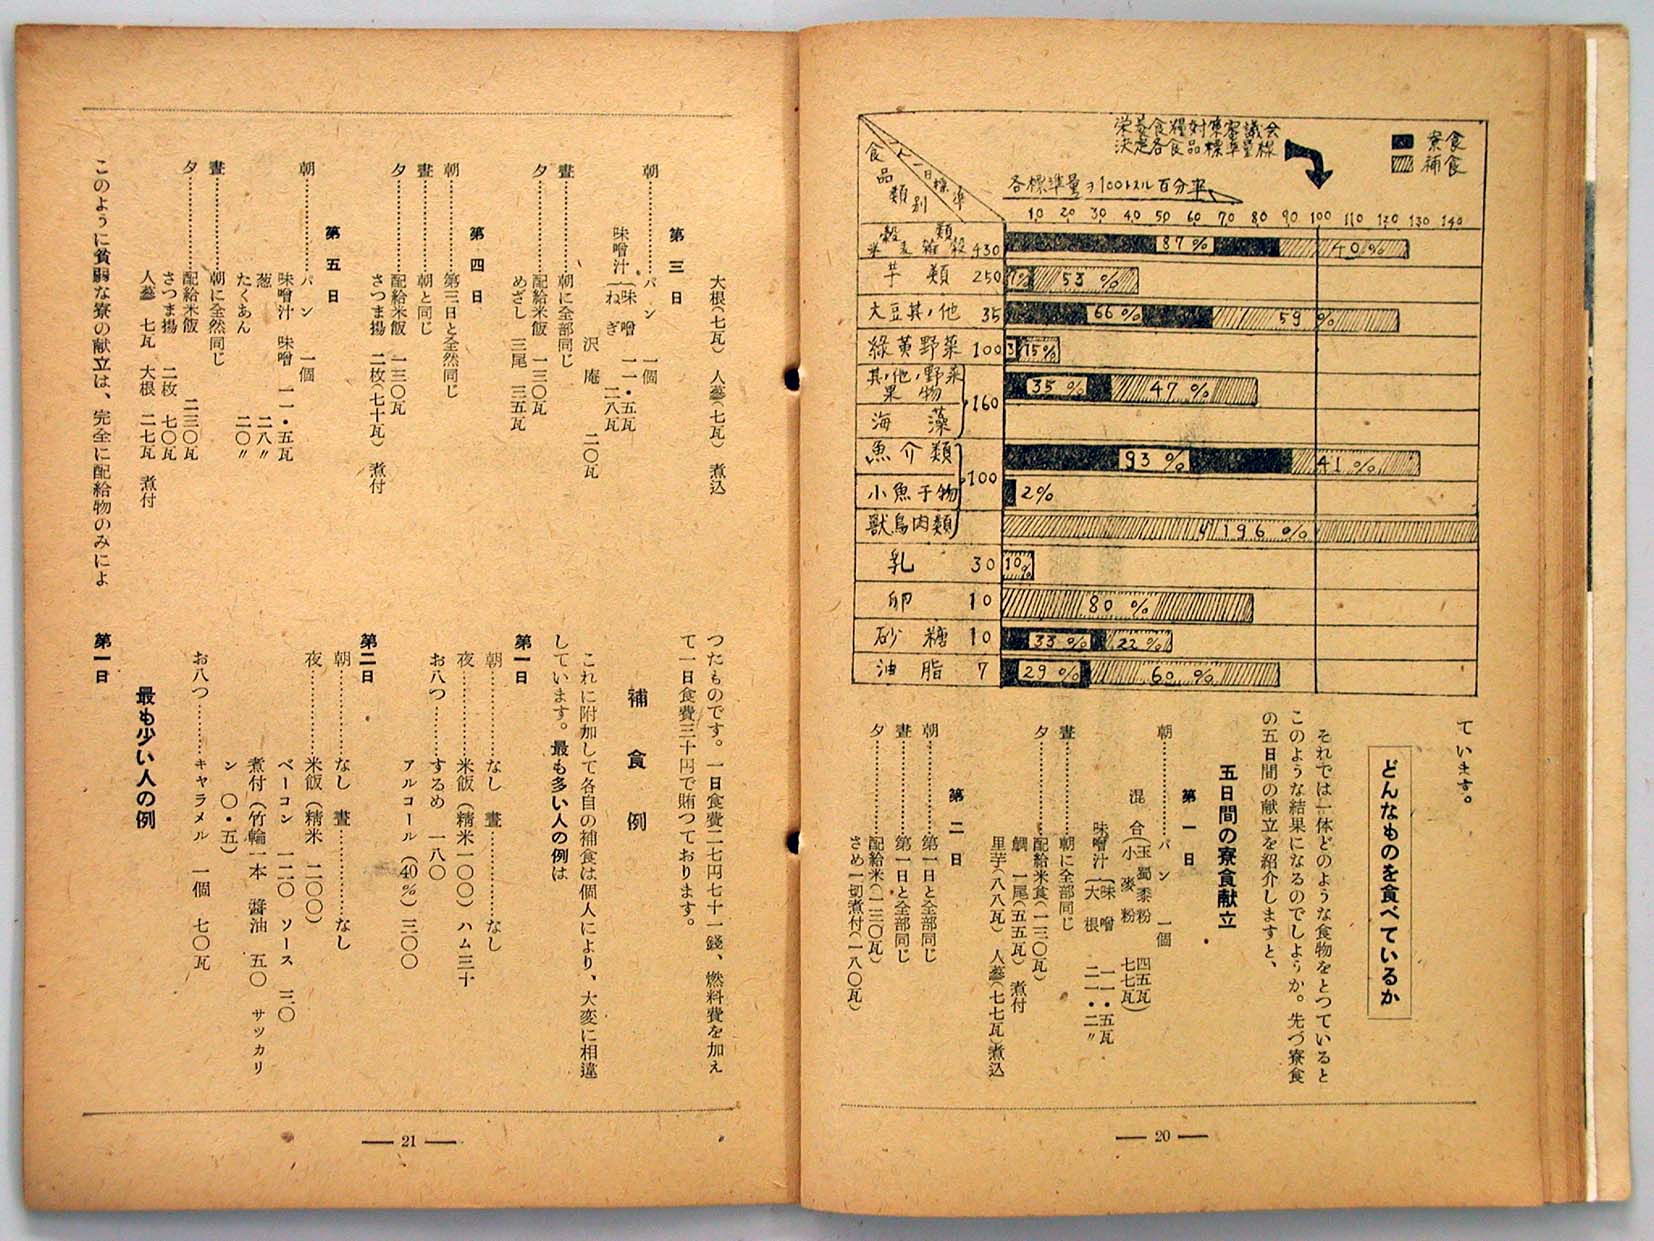 栄養食糧対策審議会
決定各食品標準量線
寮食
補食
各標準量ヲ100トスル百分率
食品類別
一人一日標準
10 20 30 40 50 60 70 80 90 100 110 120 130 140
穀類
米麦雑穀 430 87% 40%
芋類 250 7% 53%
大豆其ノ他 35 66% 59%
緑黄野菜 100 3 15%
其ノ他ノ野菜
果物 160 35% 47%
海藻
魚介類 100 93% 41%
小魚干物 2%
獣鳥肉類 196%
乳 30 10%
卵 10 80%
砂糖 10 33% 22%
油脂 7 29% 60%
ています。
どんなものを食べているか
それでは一体どのような食物をとつていると
このような結果になるのでしようか。先づ寮食
の五日間の献立を紹介しますと、
五日間の寮食献立
第一日
朝…………パン 一個
混合(玉蜀黍粉 四五瓦
小麦粉 七七瓦)
味噌汁(味噌 一一・五瓦
大根 二一・二〃
晝…………朝に全部同じ
夕…………配給米食(一三〇瓦)
鯛 一尾(五五瓦)煮付
里芋(八八瓦)人蔘(七七瓦)煮込
第二日
朝…………第一日と全部同じ
晝…………第一日と全部同じ
夕…………配給米(一三〇瓦)
さめ一切煮付(一八〇瓦)
— 20 —
大根(七瓦)人蔘(七瓦)煮込
第三日
朝…………パン 一個
味噌汁(味噌 一一・五瓦
ねぎ 二八瓦
沢庵 二〇瓦
晝…………朝に全部同じ
夕…………配給米飯 一三〇瓦
めざし 三尾 三五瓦
第四日
朝…………第三日と全然同じ
晝…………朝と同じ
夕…………配給米飯 一三〇瓦
さつま揚 二枚(七十瓦)煮付
第五日
朝…………パン 一個
味噌汁 味噌 一一・五瓦
葱 二八〃
たくあん 二〇〃
晝…………朝に全然同じ
夕…………配給米飯 二三〇瓦
さつま揚 二枚 七〇瓦
人蔘 七瓦 大根 二七瓦 煮付
このように貧弱な寮の献立は、完全に配給物のみによ
つたものです。一日食費二七円七十一錢、燃料費を加え
て一日食費三十円で賄つております。
補食例
これに附加して各自の補食は個人により、大変に相違
しています。最も多い人の例は
第一日
朝…………なし 晝…………なし
夜…………米飯(精米一〇〇)ハム三十
お八つ………するめ 一八〇
アルコール(40%)三〇〇
第二日
朝…………なし 晝…………なし
夜…………米飯(精米 二〇〇)
ベーコン 一二〇 ソース 三〇
煮付(竹輪一本 醬油 五〇 サッカリ
ン 〇・五)
お八つ………キャラメル 一個 七〇瓦
最も少い人の例
第一日
— 21 —